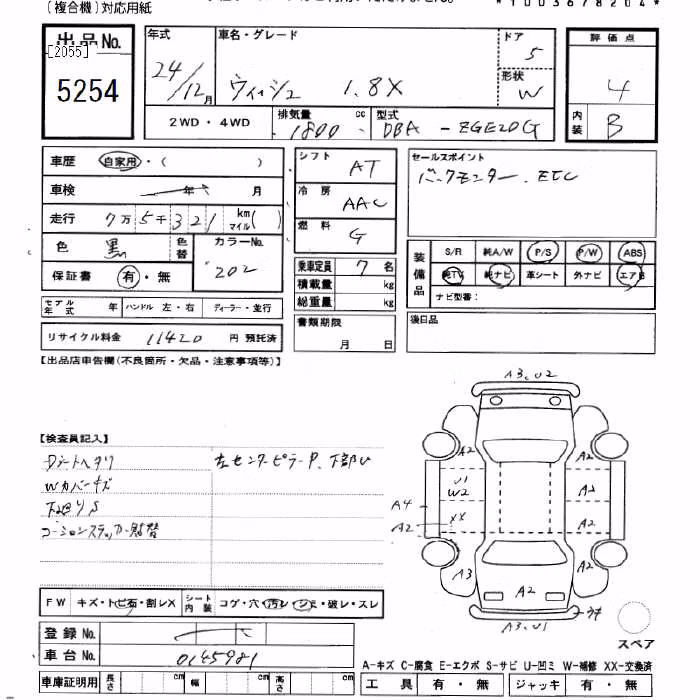 (複合機)対応用紙
*1003678204*
出品No.
[2055]
5254
年式
24/12月
車名・グレード
ウィッシュ 1.8X
ドア
5
形状
W
評価点
4
内装
B
2WD・4WD
排気量
1800 cc
型式
DBA-ZGE20G
車歴 自家用・( )
車検 年 月
走行 7万5千321 km マイル( )
色 黒
色替
カラーNo.
202
保証書 有・無
モデル年式 年 ハンドル 左・右 ディーラー・並行
リサイクル料金 11420 円 預託済
シフト
AT
冷房
AAC
燃料
G
乗車定員 7 名
積載量 kg
総重量 kg
書類期限
月 日
セールスポイント
バックモニター、ETC
装備品
S/R 純A/W P/S P/W ABS
純TV 純ナビ 革シート 外ナビ エアB
ナビ型番:
後日品
【出品店申告欄(不良箇所・欠品・注意事項等)】
【検査員記入】
Dシートヘタリ
Wカバーキズ
下廻りS
コーションステッカー貼替
左センターピラーP、下部U
A3、U2
A2
A2
U1
W2
A2
A4
A2
XX
A2
A3
A2
A2
A3、U1
スペア
FW キズ・トビ石・割レX
シート内装 コゲ・穴・汚レ・シミ・破レ・スレ
登録No.
車台No. 0145981
車庫証明用 長さ cm 幅 cm 高さ cm
A-キズ C-腐食 E-エクボ S-サビ U-凹ミ W-補修 XX-交換済
工具 有・無 ジャッキ 有・無